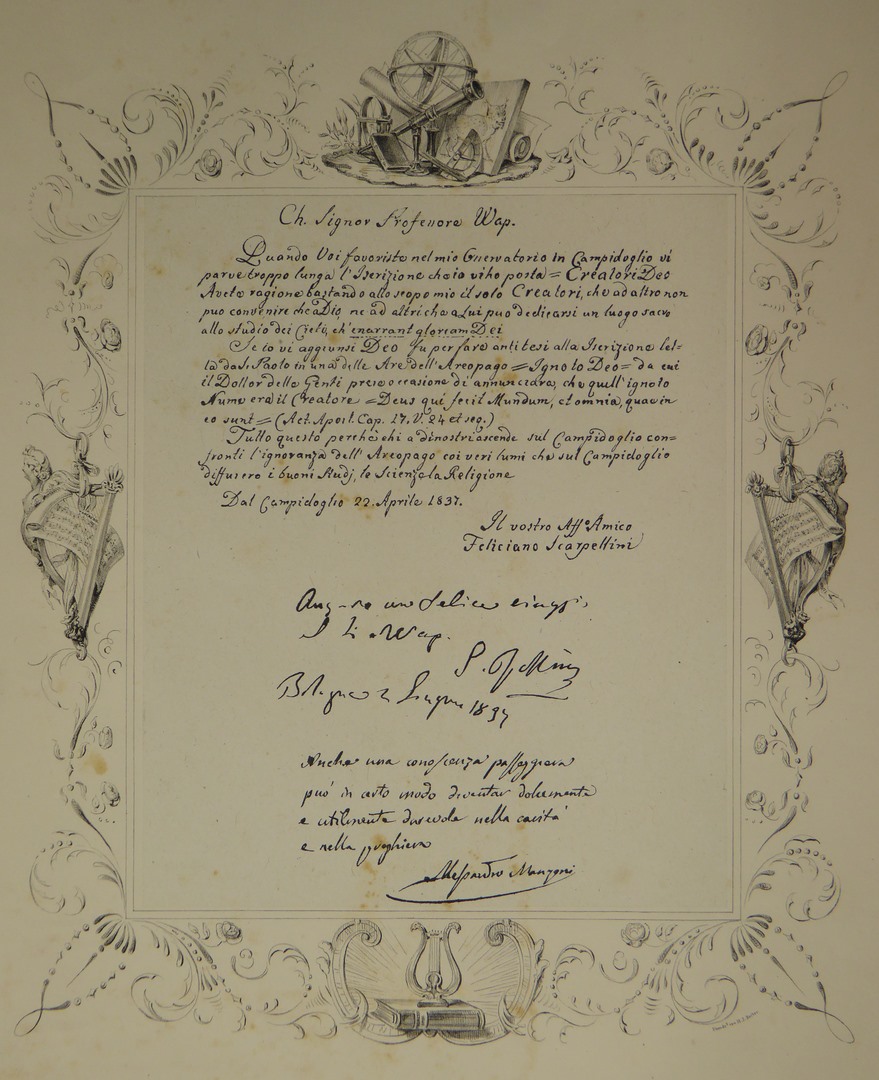 Ch. Signor Professore Wap.
Quando Voi favoriste nel mio Osservatorio in Campidoglio vi
parve troppo lunga l'Iscrizione che io vi ho posta = Creatori Deo
Avete ragione bastando allo scopo mio il solo Creatori, che ad altro non
può convenire che a Dio, ne ad altri che a Lui può dedicarsi un luogo sacro
allo studio dei Cieli, ch'enarrant gloriam Dei
Se io vi aggiunsi Deo fu per fare antitesi alla Iscrizione let-
ta da S. Paolo in una delle Are dell'Areopago = Ignoto Deo = da cui
il Dottor delle Genti prese occasione di annunciare, che quell'ignoto
Nume era il Creatore = Deus qui fecit Mundum, et omnia, quae in
eo sunt = (Act. Apost. Cap. 17, V. 24 et seg.)
Tutto questo perchè chi a dì nostri ascende sul Campidoglio con=
fronti l'ignoranza dell'Areopago coi veri lumi che sul Campidoglio
diffusero i buoni Studj, le Scienze la Religione
Dal Campidoglio 22. Aprile 1837.
Il vostro Aff.º Amico
Feliciano Scarpellini
un felice viaggio
Wap.
1837
Anche una conoscenza passeggiera
può in certo modo diventar dolcemente
e utilmente durevole nella carità
e nella preghiera
Alessandro Manzoni